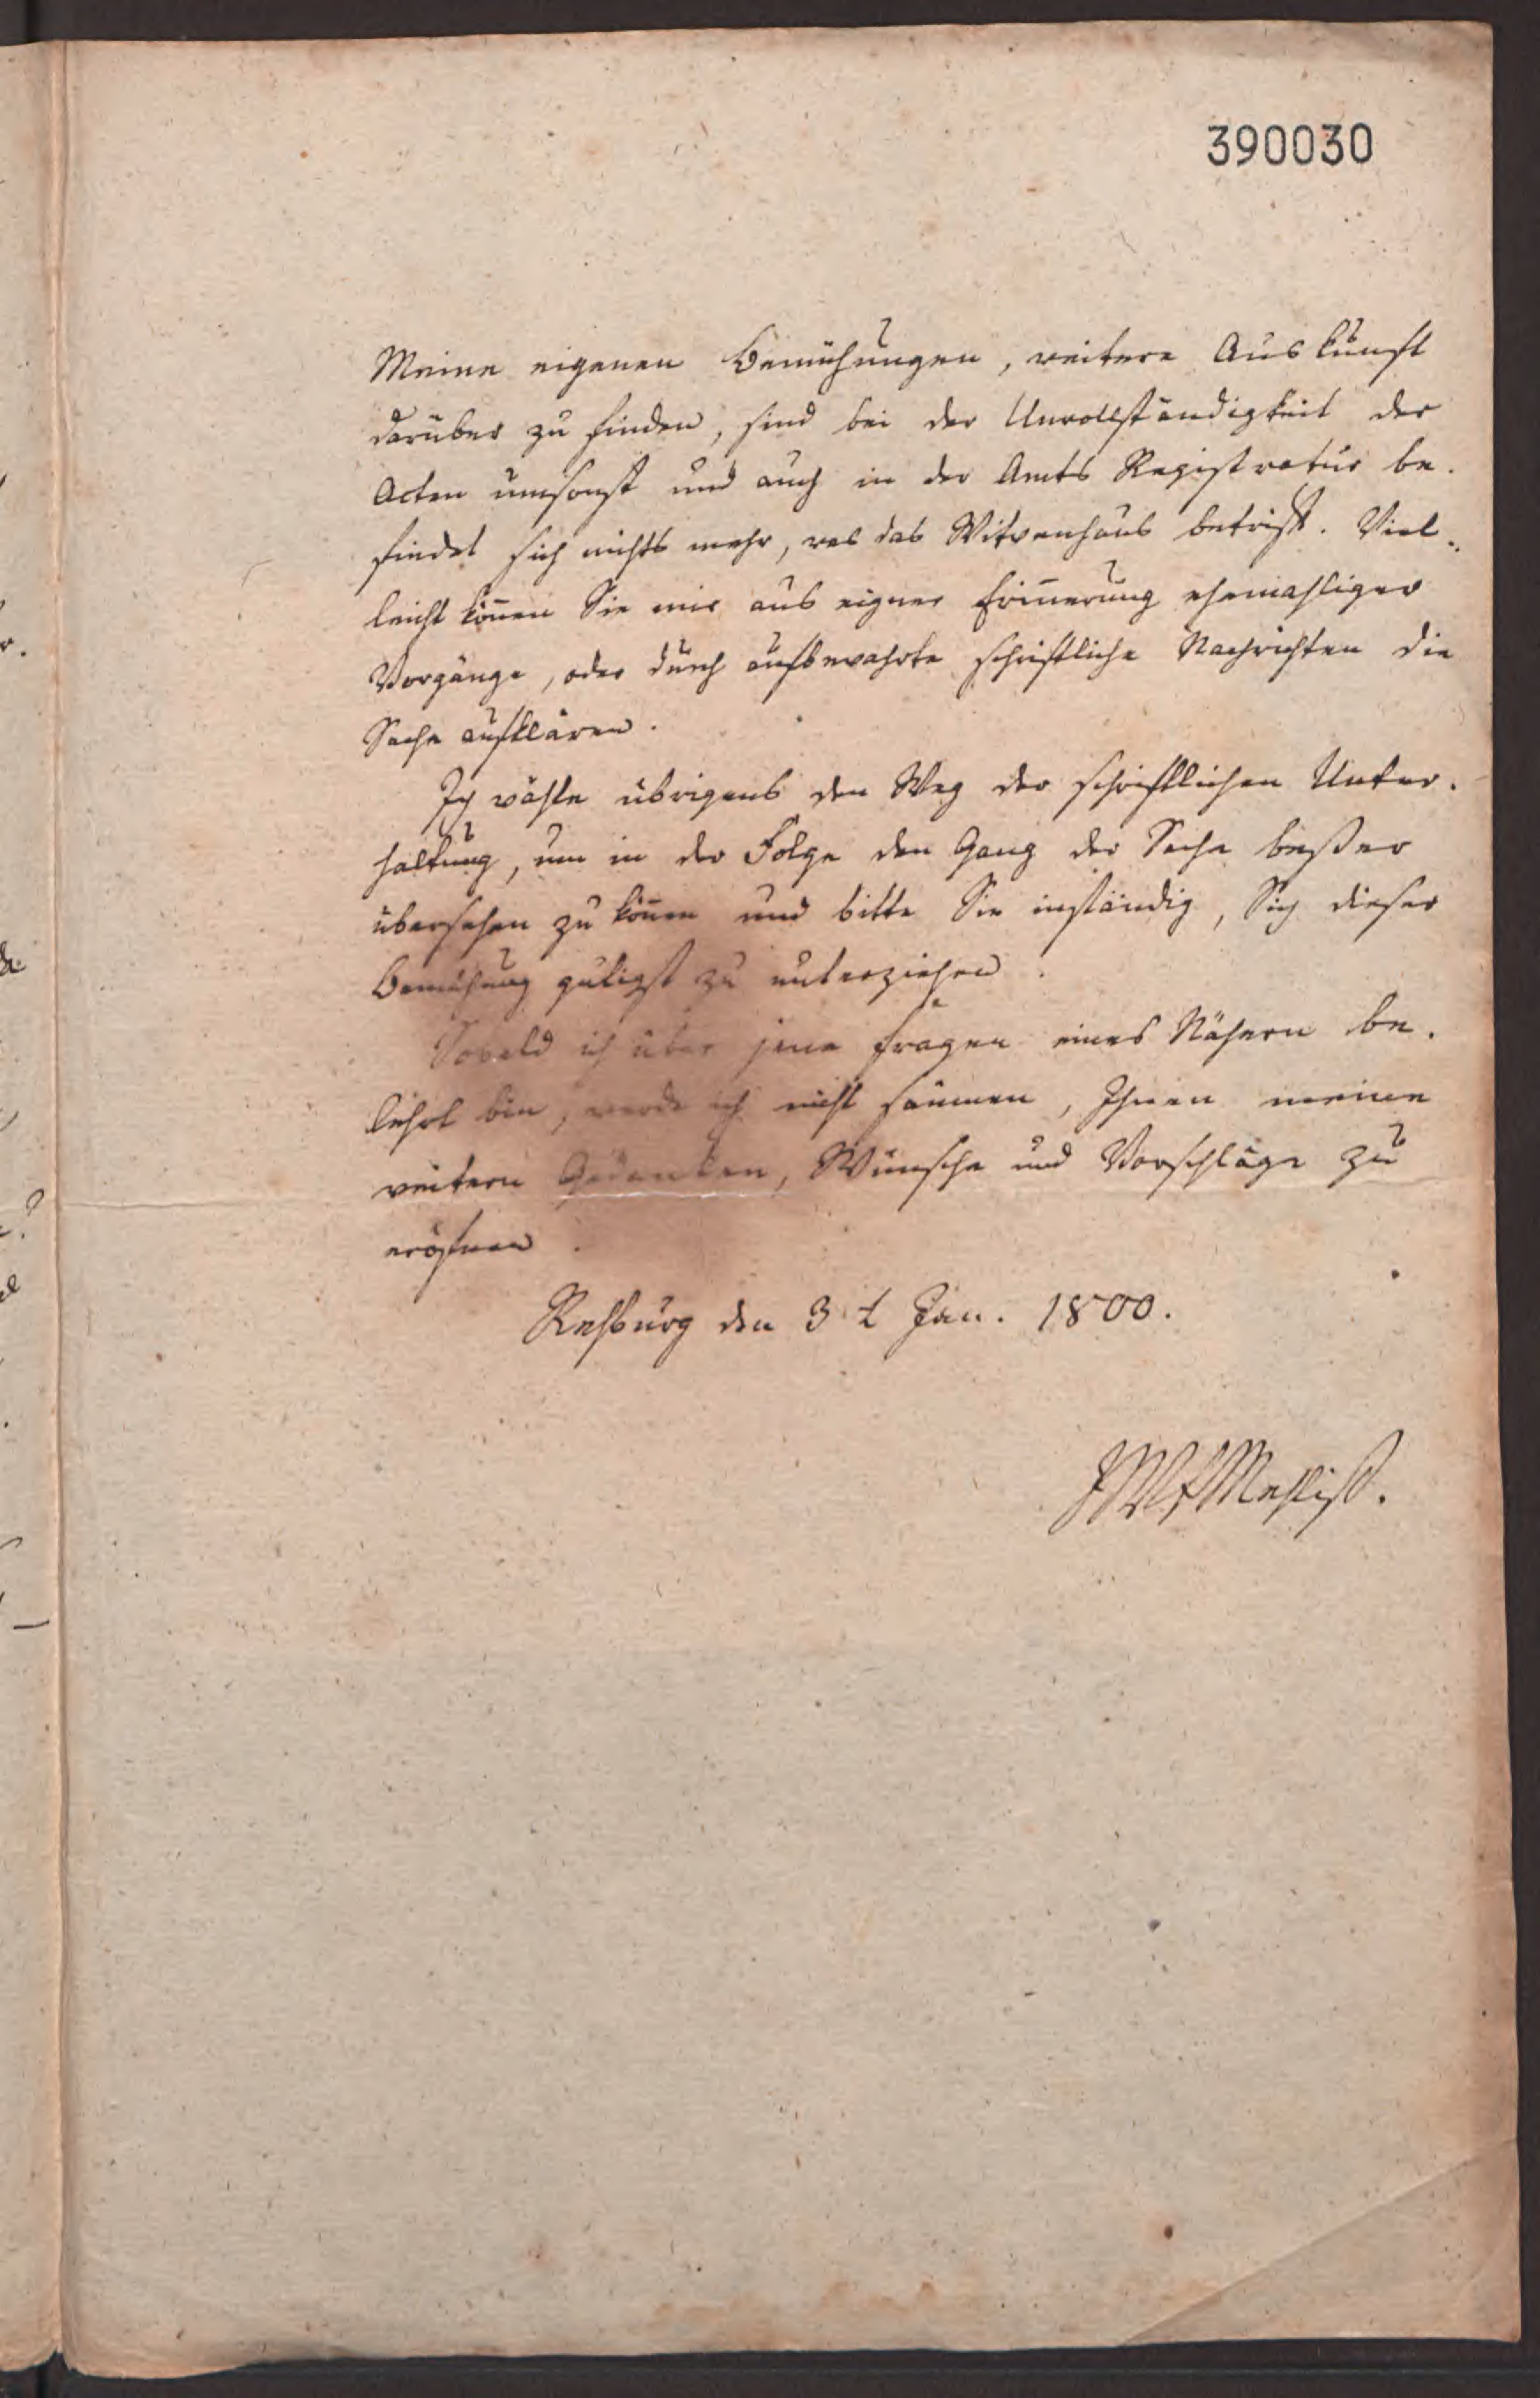 390030
Meine eigenen Bemühungen, weitere Auskunft
darüber zu finden, sind bei der Unvollständigkeit der
Acten umsonst und auch in der Amts Registratur be-
findet sich nichts mehr, was das Witwenhaus betrifft. Viel-
leicht können Sie mir aus eigner Erinnerung ehemahliger
Vorgänge, oder durch aufbewahrte schriftliche Nachrichten die
Sache aufklären.
Ich wähle übrigens den Weg der schriftlichen Unter-
haltung, um in der Folge den Gang der Sache beßer
übersehen zu können und bitte Sie inständig, Sich dieser
Bemühung gütigst zu unterziehen.
Sobald ich über jene Fragen eines Nähern be-
lehrt bin, werde ich nicht säumen, Ihnen meine
weitern Gedanken, Wünsche und Vorschläge zu
eröfnen.
Rehburg den 3t Jan. 1800.
Mehliß.